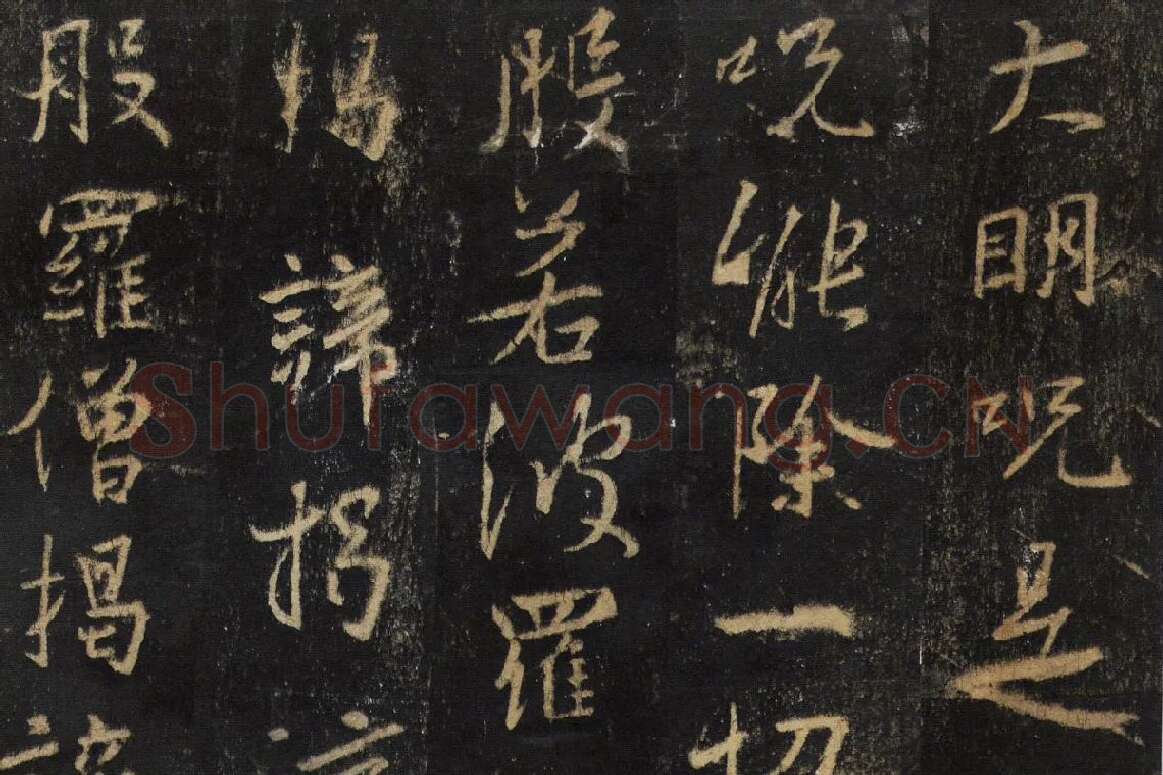 大明呪是
呪能除一切
般若波羅
揭諦揭
般羅僧揭
Shufawang.CN